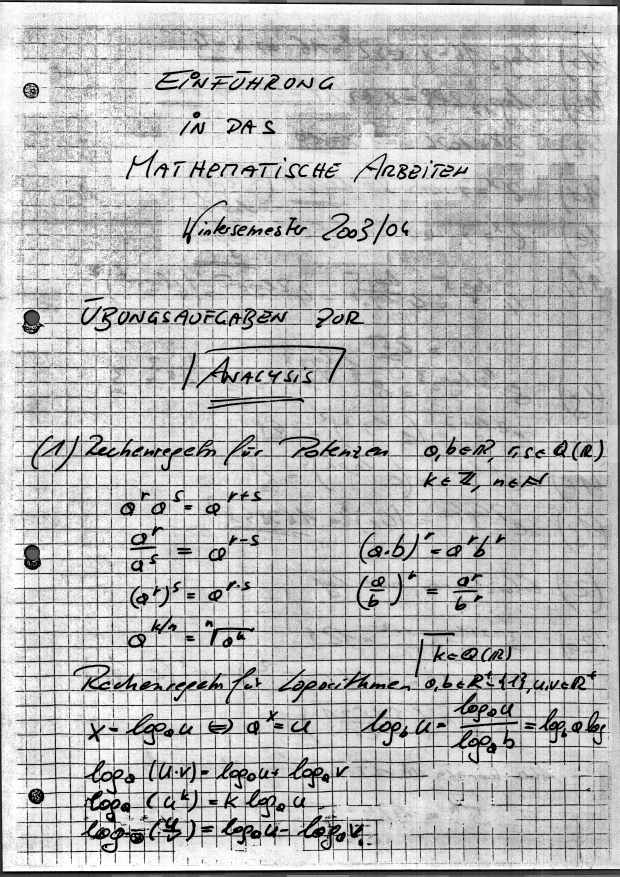 EINFÜHRUNG
IN DAS
MATHEMATISCHE ARBEITEN
Wintersemester 2003/04
ÜBUNGSAUFGABEN ZUR
ANALYSIS
(1) Rechenregeln für Potenzen a,b∈ℝ, r,s∈ℚ(ℝ)
k∈ℤ, n∈ℕ
a^r a^s = a^{r+s}
a^r/a^s = a^{r-s} (a·b)^r = a^r b^r
(a^r)^s = a^{r·s} (a/b)^r = a^r/b^r
a^{k/n} = ⁿ√a^k
k∈ℚ(ℝ)
Rechenregeln für Logarithmen a,b∈ℝ⁺-{1}, u,v∈ℝ⁺
x = log_a u ⇔ a^x = u log_b u = log_a u / log_a b = log_b a log
log_a (u·v) = log_a u + log_a v
log_a (u^k) = k log_a u
log_a (u/v) = log_a u - log_a v